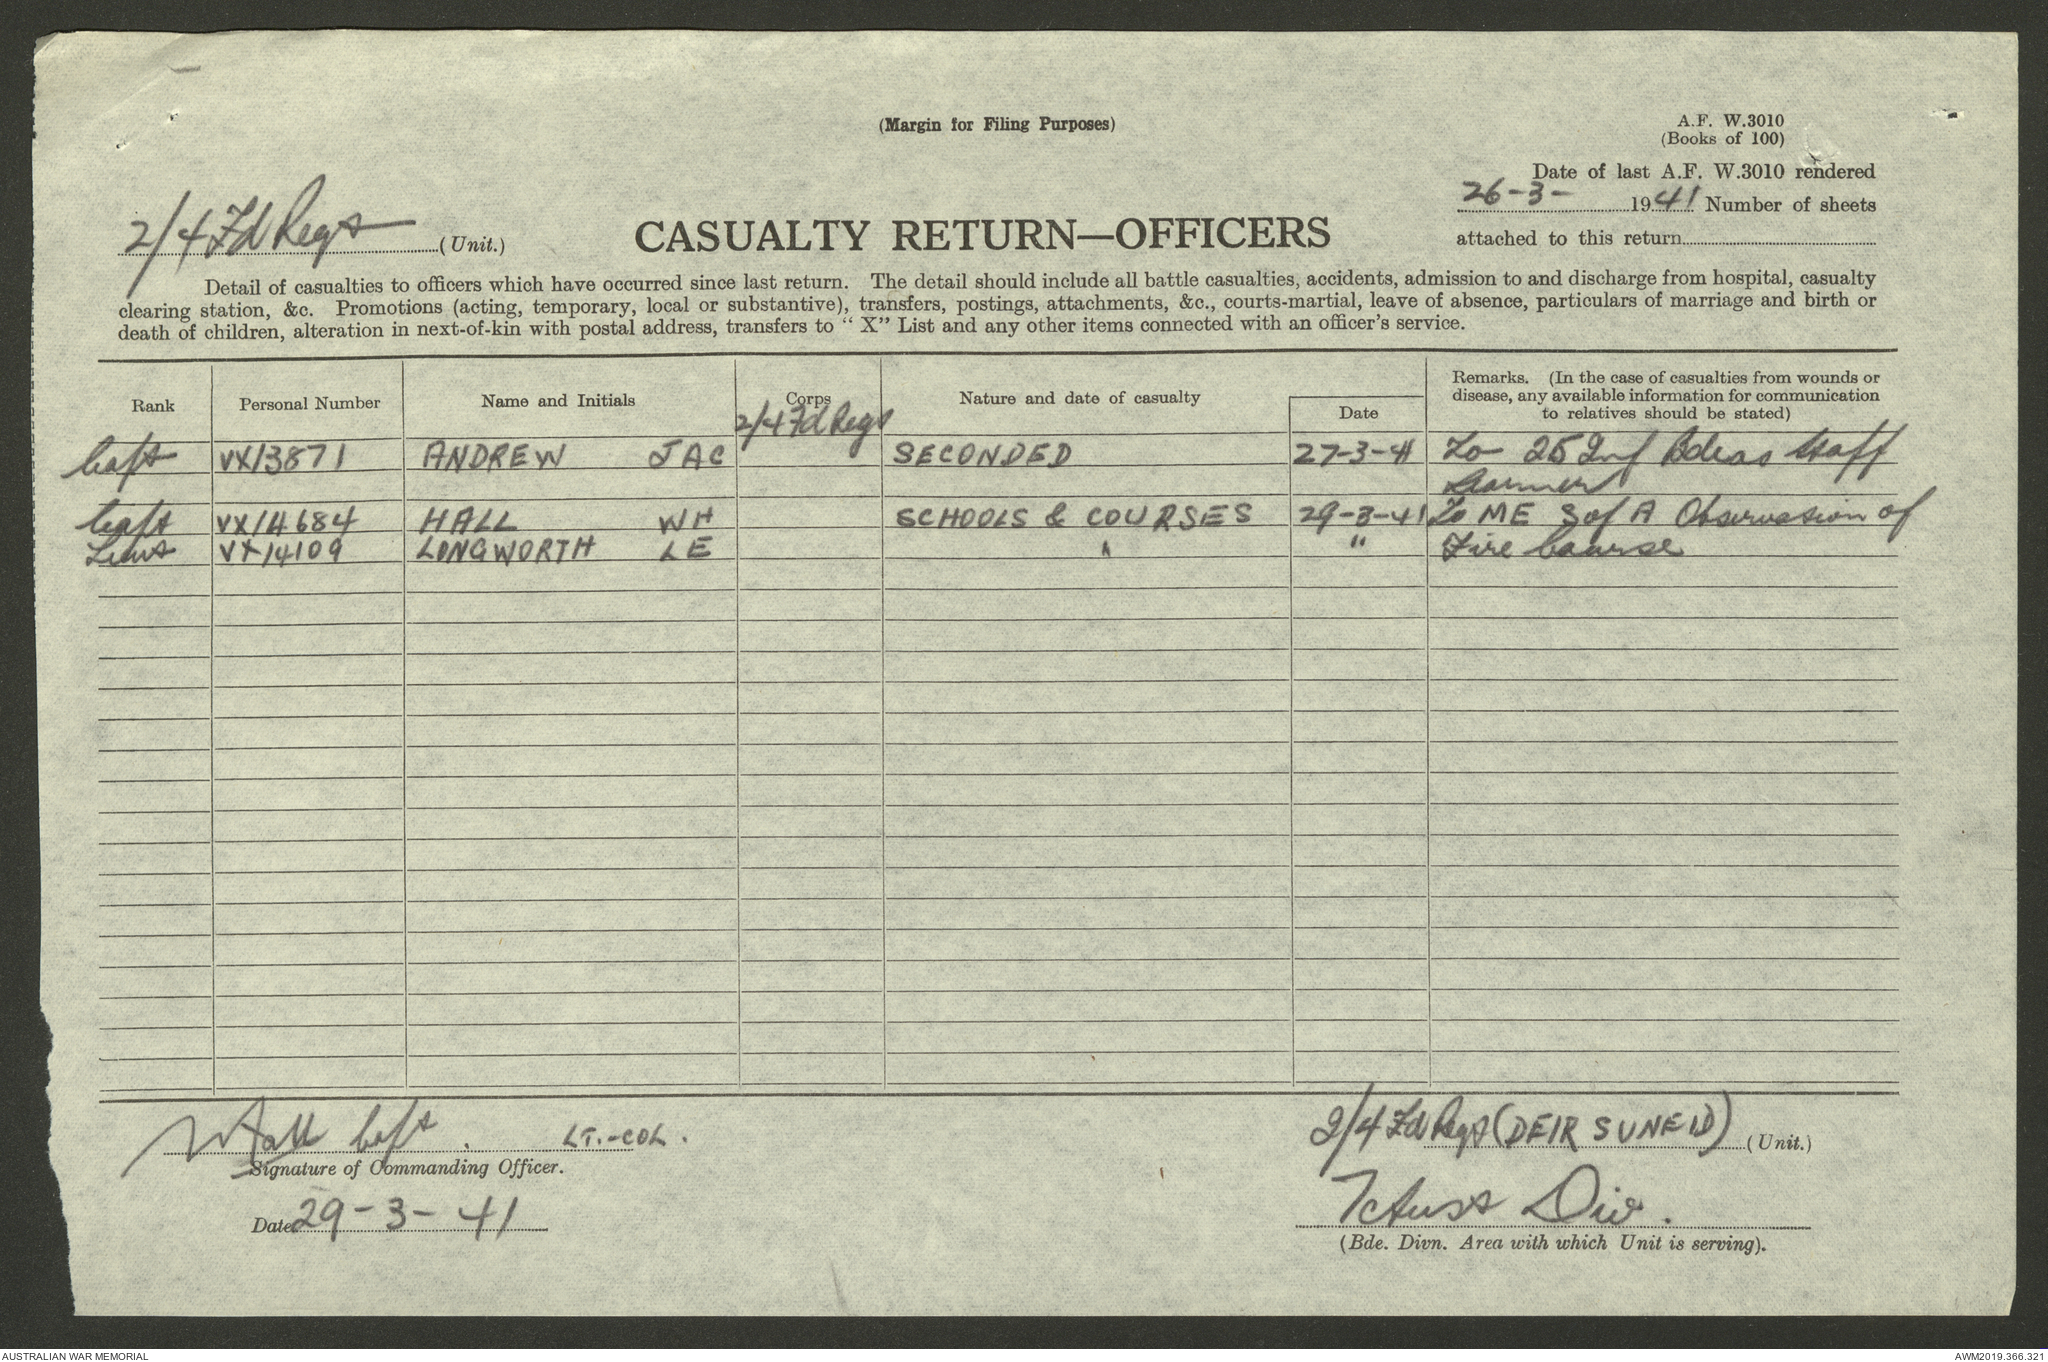 (Margin for Filing Purposes)
A.F. W.3010
(Books of 100)
Date of last A.F. W.3010 rendered
26-3- 1941 Number of sheets
attached to this return
2/4 Fd Regt (Unit.)
CASUALTY RETURN—OFFICERS
Detail of casualties to officers which have occurred since last return. The detail should include all battle casualties, accidents, admission to and discharge from hospital, casualty
clearing station, &c. Promotions (acting, temporary, local or substantive), transfers, postings, attachments, &c., courts-martial, leave of absence, particulars of marriage and birth or
death of children, alteration in next-of-kin with postal address, transfers to "X" List and any other items connected with an officer's service.
Rank Personal Number Name and Initials Corps Nature and date of casualty Date Remarks. (In the case of casualties from wounds or
disease, any available information for communication
to relatives should be stated)
2/4 Fd Regt
Capt VX13871 ANDREW JAC SECONDED 27-3-41 To 25 Inf Bde as Staff
Learner
Capt VX14684 HALL WH SCHOOLS & COURSES 29-3-41 To ME S of A Observation of
Lieut VX14109 LONGWORTH LE " " Fire Course
WHall Capt. LT.-COL.
Signature of Commanding Officer.
Date 29-3-41
2/4 Fd Regt (DEIR SUNEID) (Unit.)
7 Aust Div.
(Bde. Divn. Area with which Unit is serving).
AUSTRALIAN WAR MEMORIAL
AWM2019.366.321